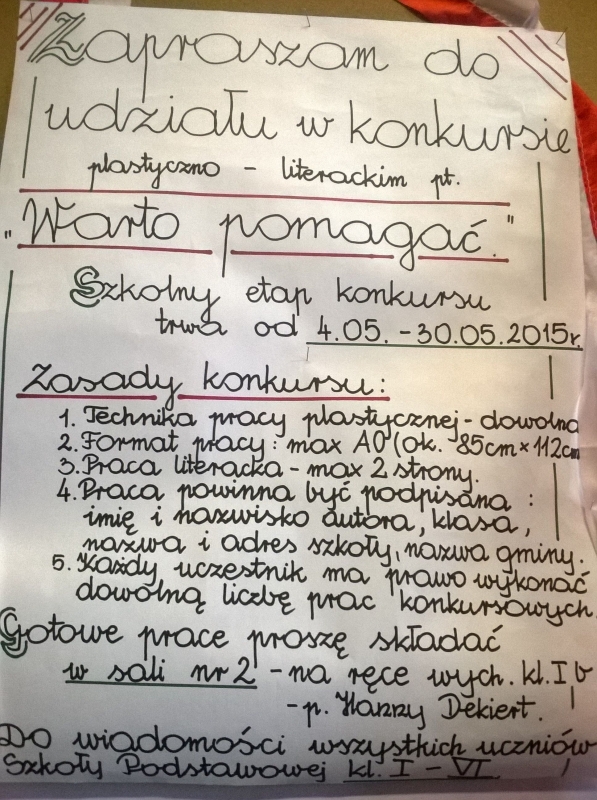 Zapraszam do
udziału w konkursie
plastyczno - literackim pt.
"Warto pomagać."
Szkolny etap konkursu
trwa od 4.05. - 30.05.2015r.
Zasady konkursu:
1. Technika pracy plastycznej - dowolna
2. Format pracy: max A0 (ok. 85cm × 112cm
3. Praca literacka - max 2 strony.
4. Praca powinna być podpisana :
imię i nazwisko autora, klasa,
nazwa i adres szkoły, nazwa gminy.
5. Każdy uczestnik ma prawo wykonać
dowolną liczbę prac konkursowych.
Gotowe prace proszę składać
w sali nr 2 - na ręce wych. kl. I b
- p. Hanny Dekiert.
Do wiadomości wszystkich uczniów
Szkoły Podstawowej kl. I - VI